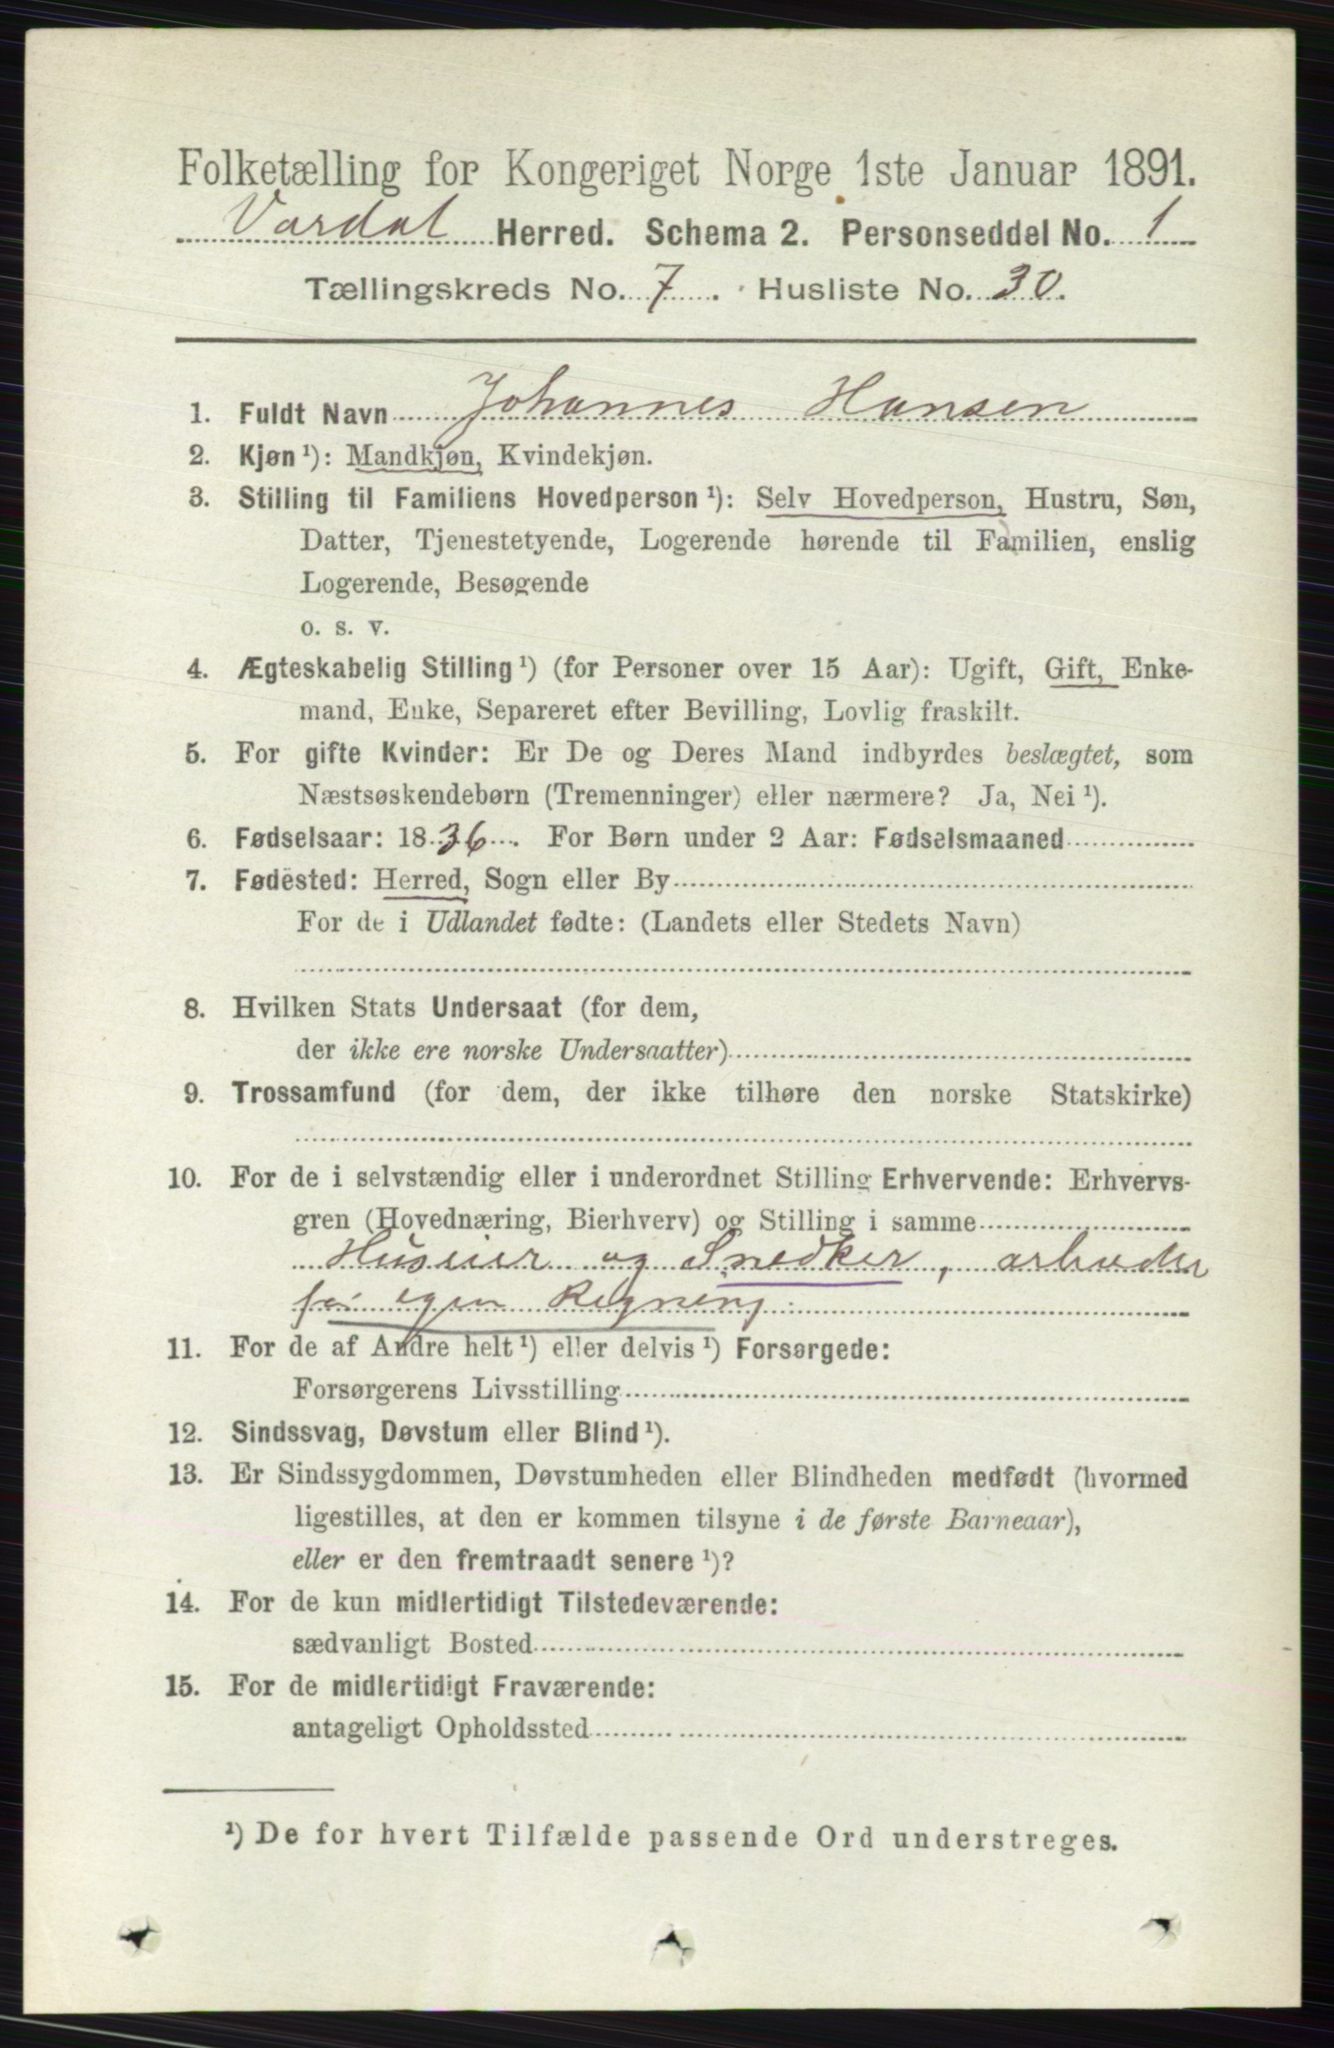 Folketælling for Kongeriget Norge 1ste Januar 1891.
Vardal Herred. Schema 2. Personseddel No. 1
Tællingskreds No. 7. Husliste No. 30.
1. Fuldt Navn Johannes Hansen
2. Kjøn ¹): Mandkjøn, Kvindekjøn.
3. Stilling til Familiens Hovedperson ¹): Selv Hovedperson, Hustru, Søn,
Datter, Tjenestetyende, Logerende hørende til Familien, enslig
Logerende, Besøgende
o. s. v.
4. Ægteskabelig Stilling ¹) (for Personer over 15 Aar): Ugift, Gift, Enke-
mand, Enke, Separeret efter Bevilling, Lovlig fraskilt.
5. For gifte Kvinder: Er De og Deres Mand indbyrdes beslægtet, som
Næstsøskendebørn (Tremenninger) eller nærmere? Ja, Nei ¹).
6. Fødselsaar: 1836. For Børn under 2 Aar: Fødselsmaaned
7. Fødested: Herred, Sogn eller By
For de i Udlandet fødte: (Landets eller Stedets Navn)
8. Hvilken Stats Undersaat (for dem,
der ikke ere norske Undersaatter)
9. Trossamfund (for dem, der ikke tilhøre den norske Statskirke)
10. For de i selvstændig eller i underordnet Stilling Erhvervende: Erhvervs-
gren (Hovednæring, Bierhverv) og Stilling i samme
Huseier og Snedker, arbeider
for egen Regning
11. For de af Andre helt ¹) eller delvis ¹) Forsørgede:
Forsørgerens Livsstilling
12. Sindssvag, Døvstum eller Blind ¹).
13. Er Sindssygdommen, Døvstumheden eller Blindheden medfødt (hvormed
ligestilles, at den er kommen tilsyne i de første Barneaar),
eller er den fremtraadt senere ¹)?
14. For de kun midlertidigt Tilstedeværende:
sædvanligt Bosted
15. For de midlertidigt Fraværende:
antageligt Opholdssted
¹) De for hvert Tilfælde passende Ord understreges.